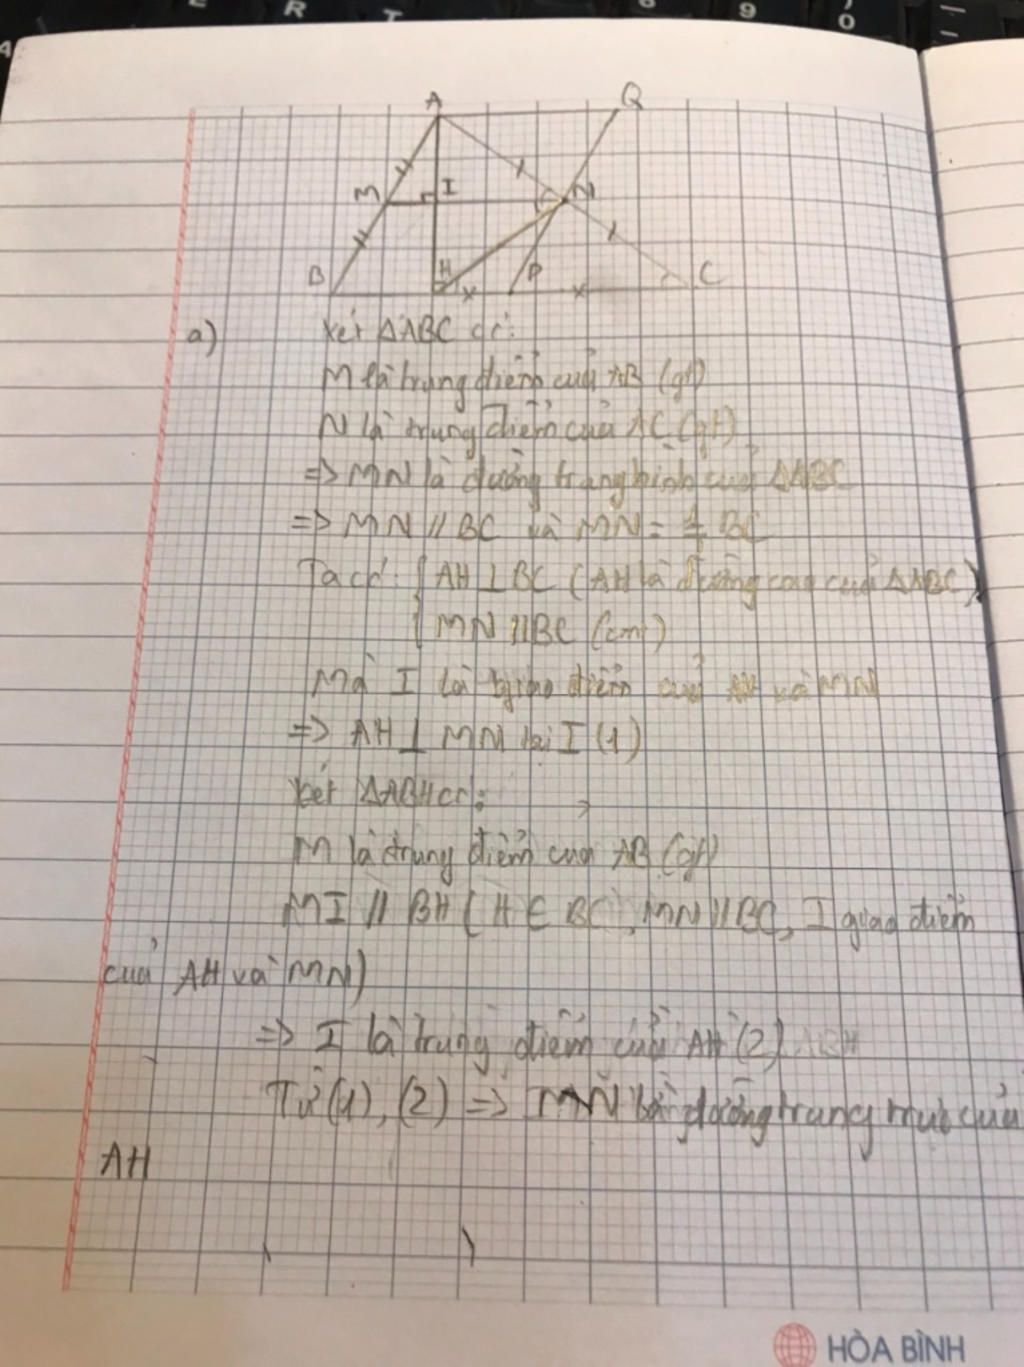 A Q
M I N
B H P C
a) Xét ΔABC có:
M là trung điểm của AB (gt)
N là trung điểm của AC (gt)
=> MN là đường trung bình của ΔABC
=> MN // BC và MN = BC
Ta có: { AH ⊥ BC (AH là đường cao của ΔABC)
MN // BC (cmt)
Mà I là giao điểm của AH và MN
=> AH ⊥ MN tại I (1)
Xét ΔABH có:
M là trung điểm của AB (gt)
MI // BH (H ∈ BC, MN // BC, I giao điểm
của AH và MN)
=> I là trung điểm của AH (2)
Từ (1), (2) => MN là đường trung trực của
AH
HÒA BÌNH